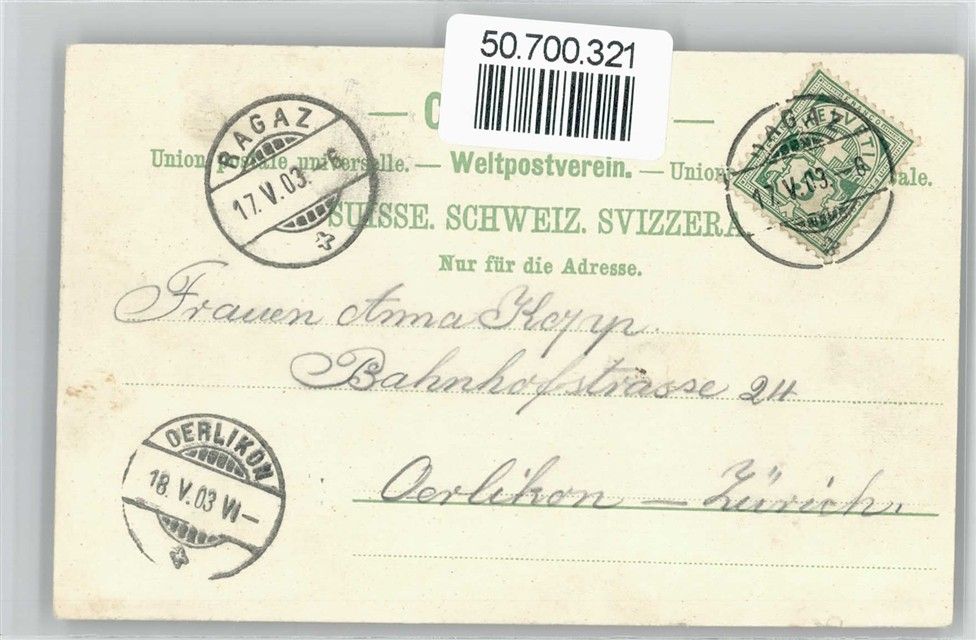 50.700.321
RAGAZ
17.V.03.–6
HELVETIA
RAGAZ
17.V.03.–6
Union postale universelle. — Weltpostverein. — Union
SUISSE. SCHWEIZ. SVIZZERA
Nur für die Adresse.
Frauen Anna Kopp.
Bahnhofstrasse 24
OERLIKON
18.V.03 VI–
Oerlikon — Zürich.